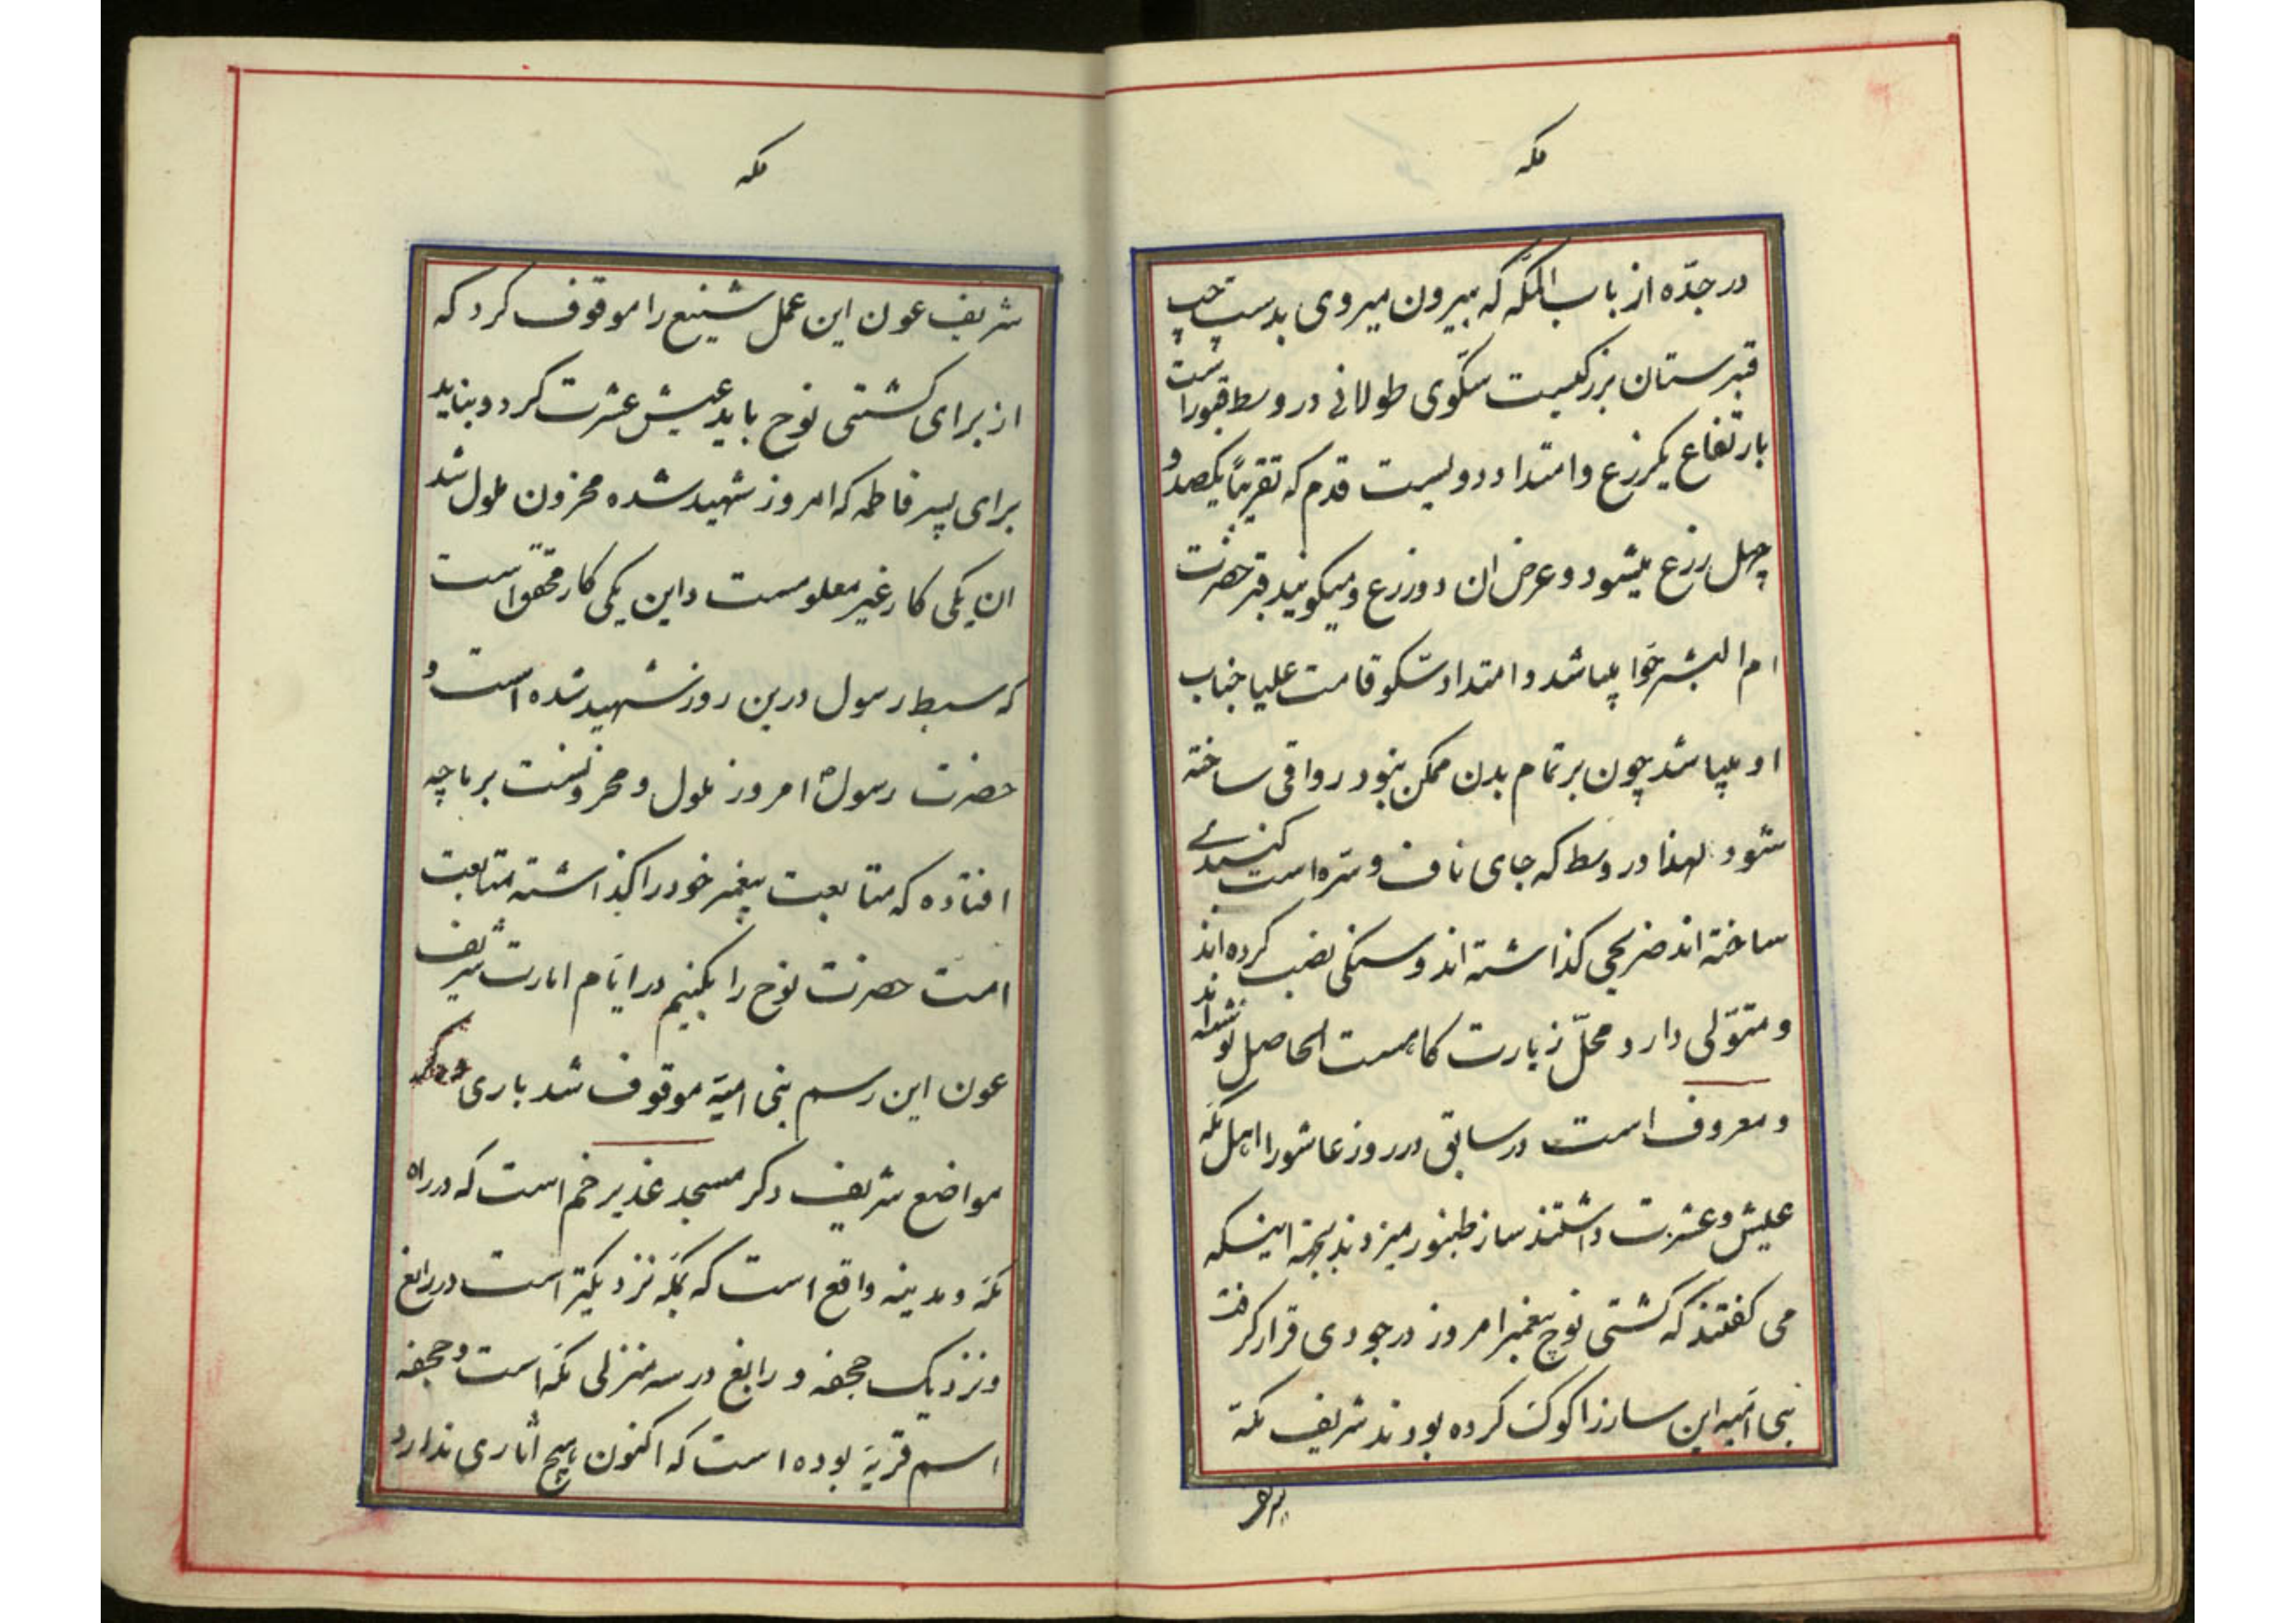 مکه
در جدّه از باب المکّه که بیرون میروی بدست چپ
قبرستان بزرگیست سکّوی طولانی در وسط قبور است
بارتفاع یکزرع و امتداد دویست قدم که تقریباً یکصد و
چهل زرع میشود و عرض ان دو زرع و میکویند قبر حضرت
ام البشر حوّا میباشد و امتداد سکو قامت علیا جناب
او میباشد چون بر تمام بدن ممکن نبود رواقی ساخته
شود لهذا در وسط که جای ناف و سره است کنبدی
ساخته اند ضریحی کذاشته اند و سنکی نصب کرده اند
و متوّلی دارد محلّ زیارت کاهست الحاصل نوشته اند
و معروف است در سابق در روز عاشورا اهل مکّه
عیش و عشرت داشتند ساز طنبور میزدند بجهة اینکه
می کفتند که کشتی نوح پیغمبر امروز در جودی قرار کرفت
بنی امیّه این ساز را کوک کرده بودند شریف مکّه
مکه
شریف عون این عمل شنیع را موقوف کرد که
از برای کشتی نوح باید عیش عشرت کرد و نباید
برای پسر فاطمه که امروز شهید شده محزون ملول شد
ان یکی کار غیر معلومست و این یکی کار محقق است
که سبط رسول درین روز شهید شده است و
حضرت رسول امروز ملول و محزونست بر ما چه
افتاده که متابعت پیغمبر خود را کذاشته متابعت
امت حضرت نوح را بکنیم در ایّام امارت شریف
عون این رسم بنی امیّه موقوف شد باری
مواضع شریف دکر مسجد غدیر خم است که در راه
مکّه و مدینه واقع است که بمکّه نزدیکتر است در رابغ
و نزدیک جحفه و رابغ در سه منزلی مکّه است و جحفه
اسم قریهٔ بوده است که اکنون هیچ اثاری ندارد